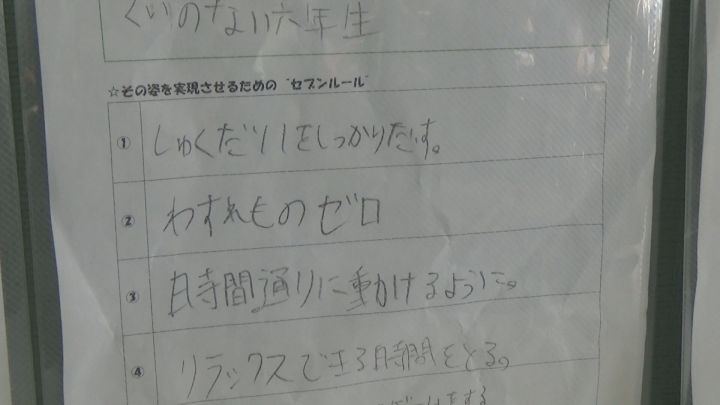 くいのない六年生
☆その姿を実現させるための "セブンルール"
① しゅくだいをしっかりだす。
② わすれものゼロ
③ 時間通りに動けるように。
④ リラックスできる時間をとる。